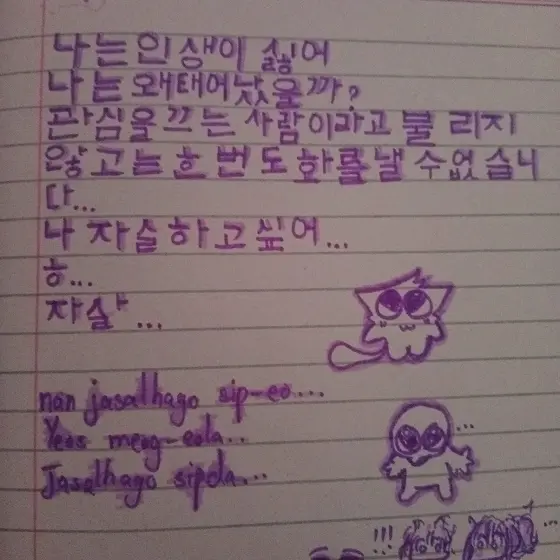 나는 인생이 싫어
나는 왜태어났을까?
관심을 끄는 사람이라고 불 리지
않고는 한 번 도 화를낼 수 없 습니
다...
나 자살하고 싶어...
흐...
자살...
nan jasalhago sip-eo...
Yeos meog-eola..
Jasalhago sipda...
...
!!!
...